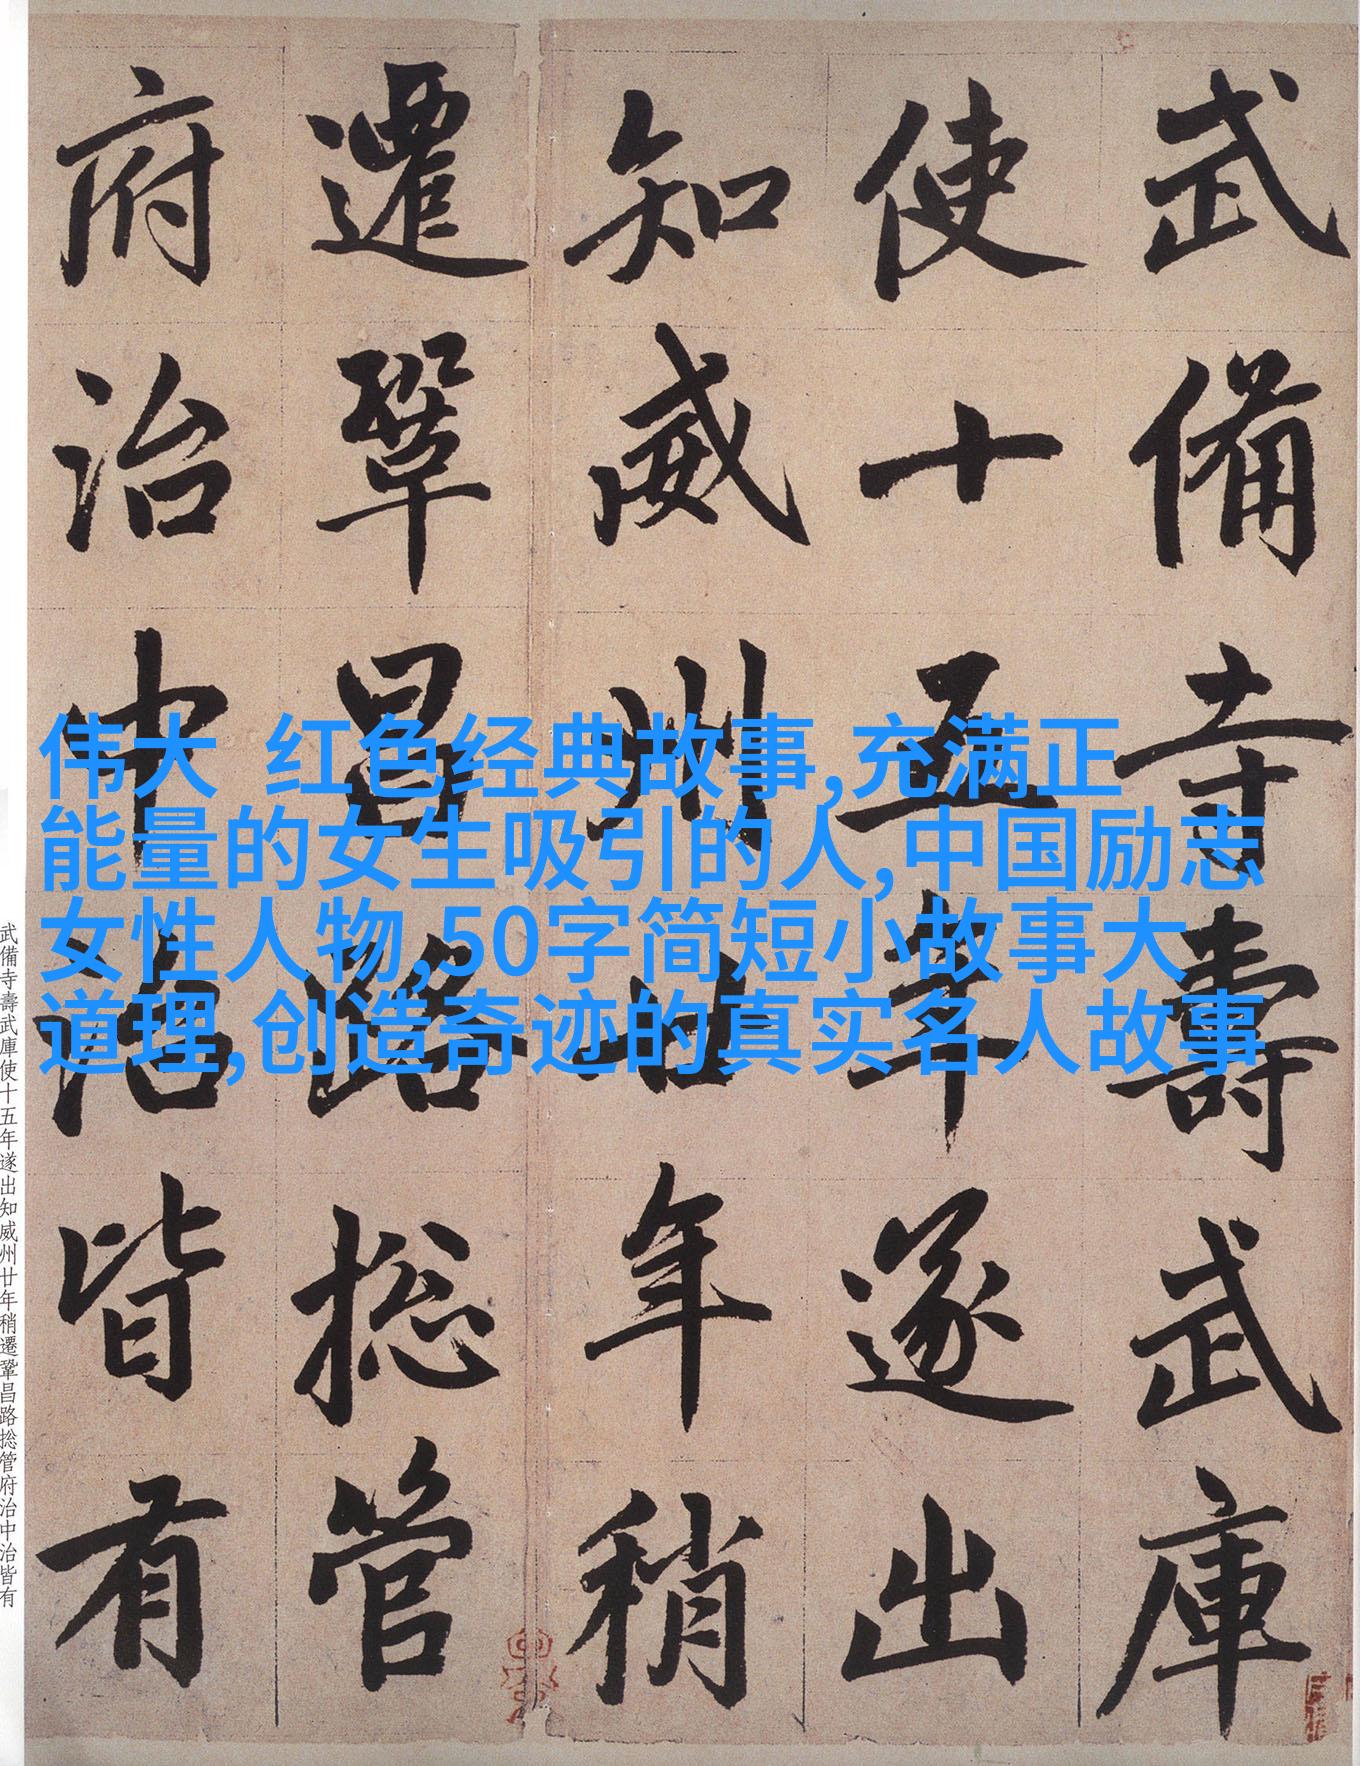 武備寺壽武庫
使十五年遂出
知威州廿年稍
遷鞏昌路捴管
府治中治皆有
伟大 红色经典故事,充满正
能量的女生吸引的人,中国励志
女性人物,50字简短小故事大
道理,创造奇迹的真实名人故事
武備寺壽武庫使十五年遂出知威州廿年稍遷鞏昌路捴管府治中治皆有